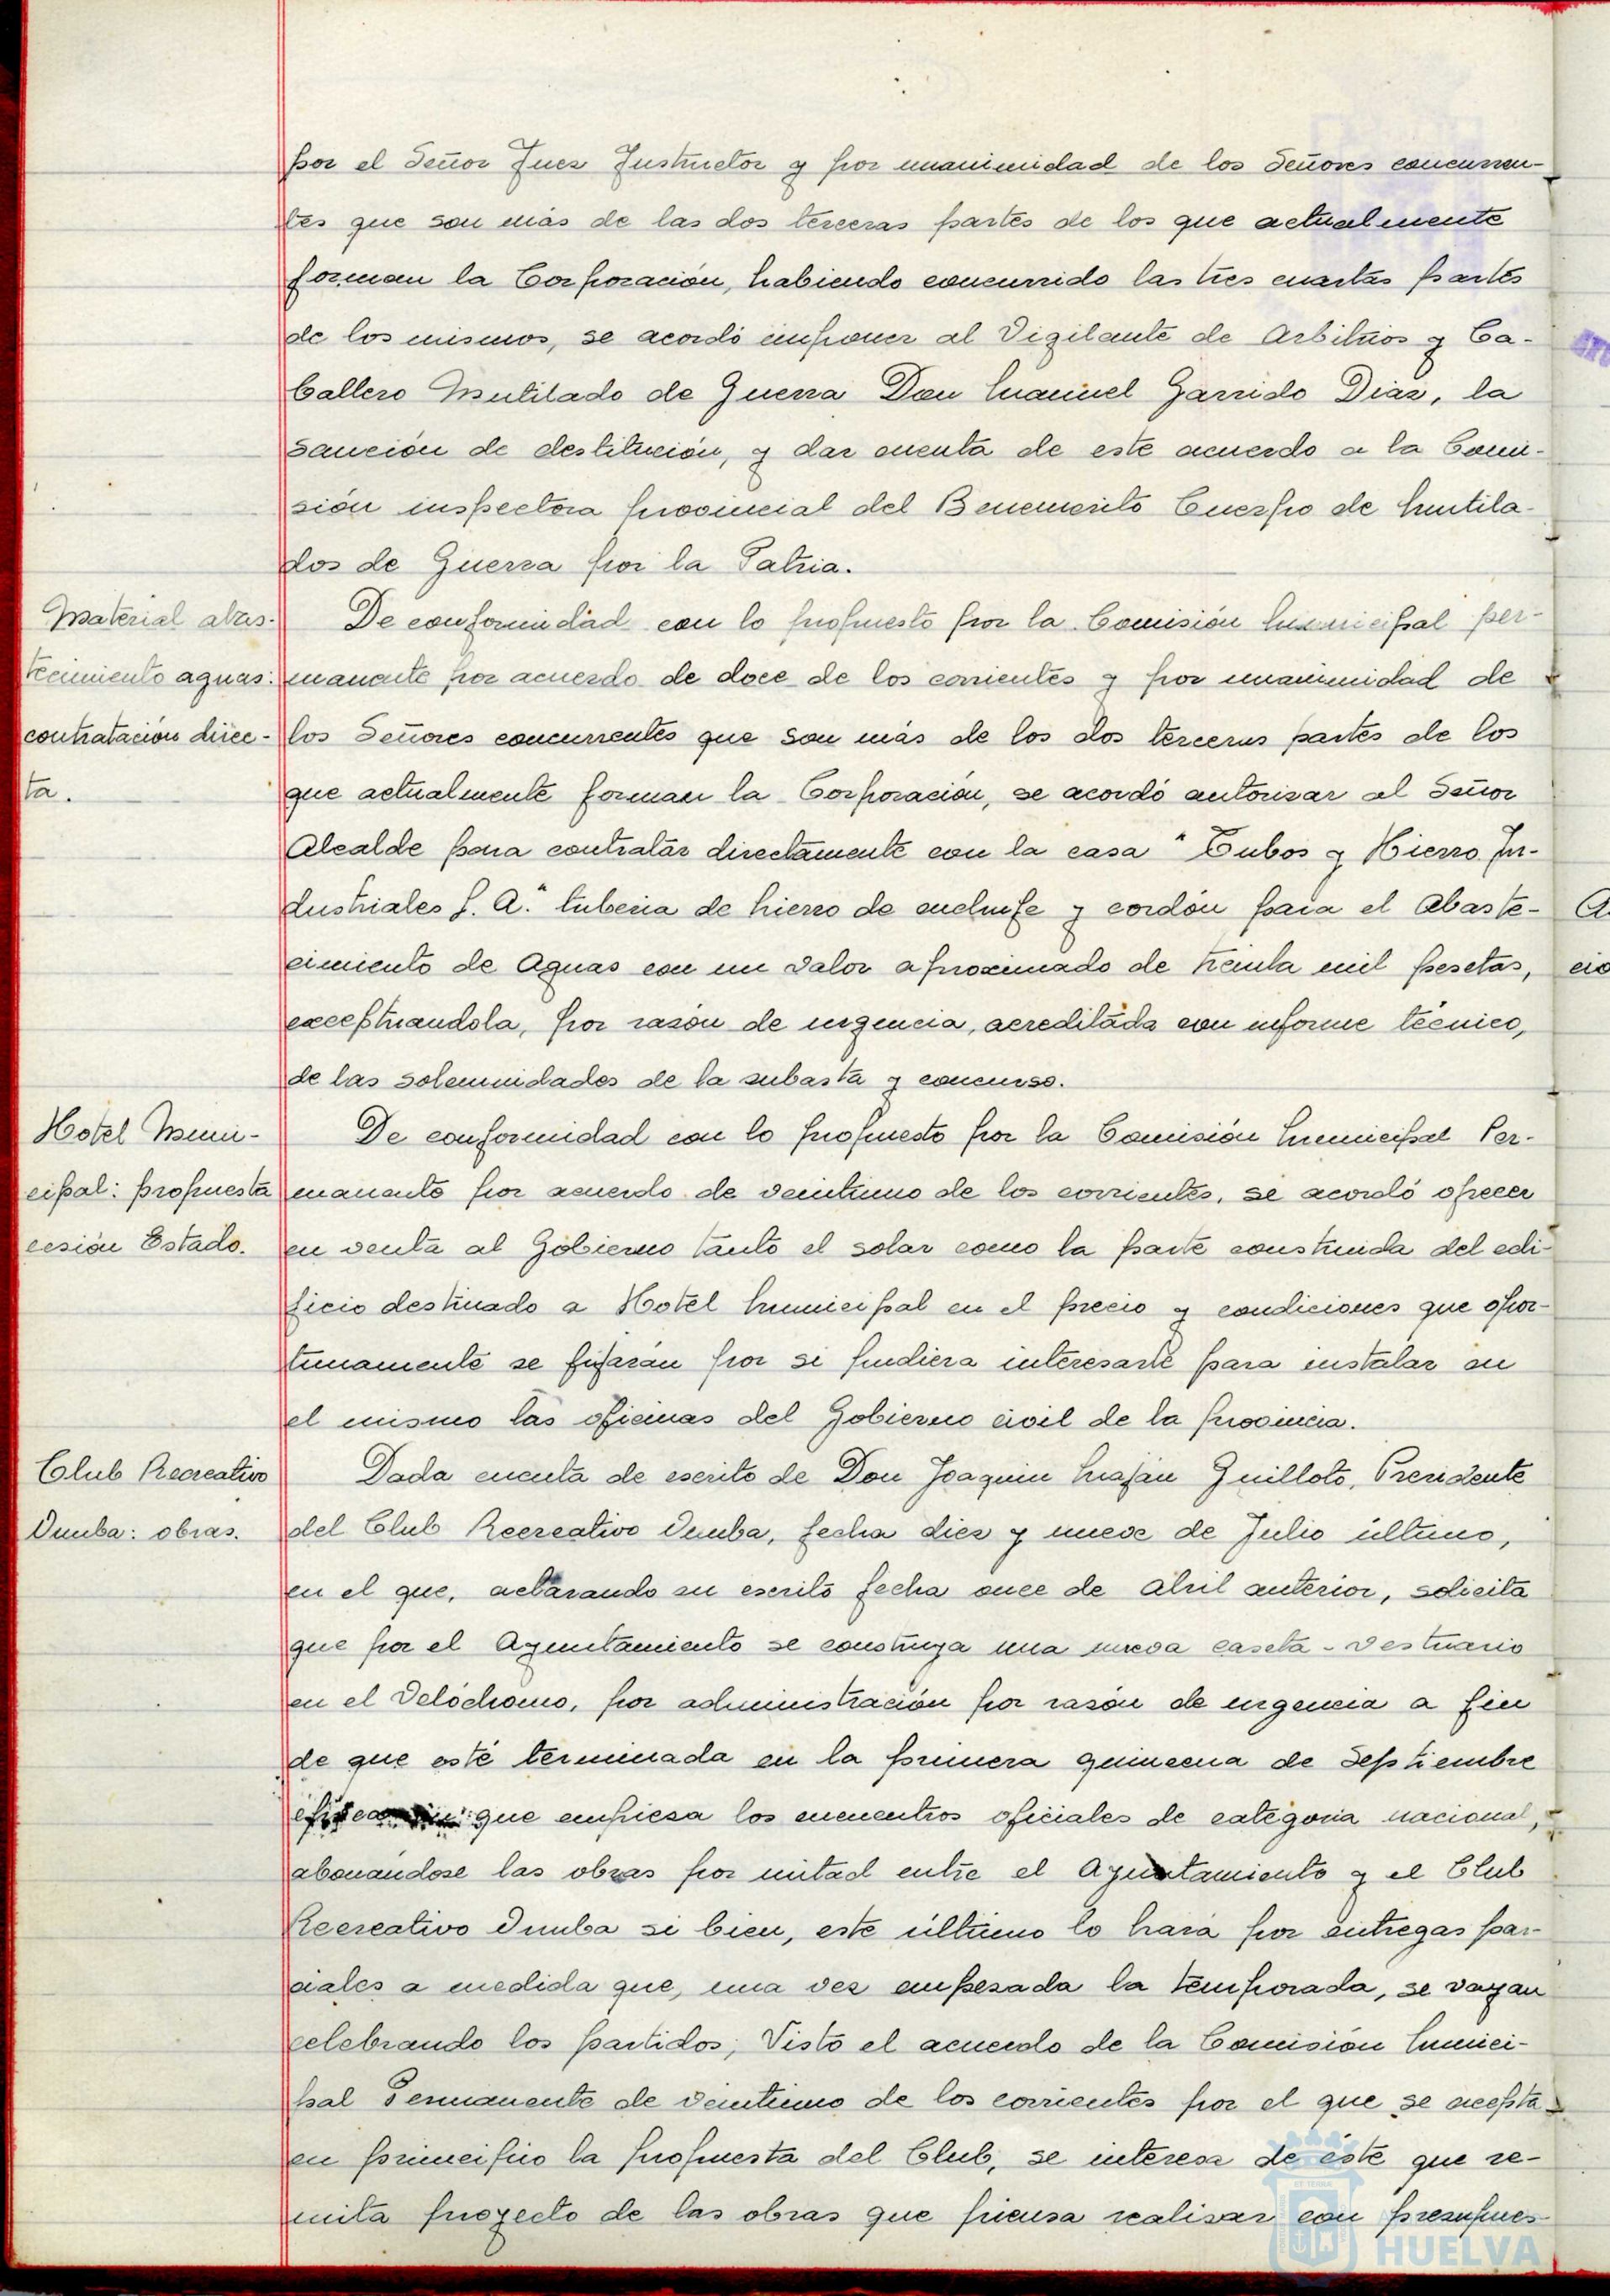 por el Señor Juez Instructor y por unanimidad de los Señores concurren-
tes que son más de las dos terceras partes de los que actualmente
forman la Corporación, habiendo concurrido las tres cuartas partes
de los mismos, se acordó imponer al Vigilante de Arbitrios y Ca-
ballero Mutilado de Guerra Don Manuel Garrido Diaz, la
sanción de destitución, y dar cuenta de este acuerdo a la Comi-
sión inspectora provincial del Benemerito Cuerpo de Mutila-
dos de Guerra por la Patria.
Material abas-
tecimiento aguas:
contratación direc-
ta.
De conformidad con lo propuesto por la Comisión Municipal per-
manente por acuerdo de doce de los corrientes y por unanimidad de
los Señores concurrentes que son más de los dos terceras partes de los
que actualmente forman la Corporación, se acordó autorizar al Señor
Alcalde para contratar directamente con la casa "Tubos y Hierro In-
dustriales S. A." tuberia de hierro de enchufe y cordón para el Abaste-
cimiento de Aguas con un valor aproximado de treinta mil pesetas,
exceptuandola, por razón de urgencia, acreditada con informe técnico,
de las solemnidades de la subasta y concurso.
Hotel Muni-
cipal: propuesta
cesión Estado.
De conformidad con lo propuesto por la Comisión Municipal Per-
manente por acuerdo de veintiuno de los corrientes, se acordó ofrecer
en venta al Gobierno tanto el solar como la parte construida del edi-
ficio destinado a Hotel Municipal en el precio y condiciones que opor-
tunamente se fijarán por si pudiera interesarle para instalar en
el mismo las oficinas del Gobierno civil de la provincia.
Club Recreativo
Onuba: obras.
Dada cuenta de escrito de Don Joaquin Maján Guilloto, Presidente
del Club Recreativo Onuba, fecha diez y nueve de Julio último,
en el que, aclarando su escrito fecha once de Abril anterior, solicita
que por el Ayuntamiento se construya una nueva caseta-vestuario
en el Velódromo, por administración por razón de urgencia a fin
de que esté terminada en la primera quincena de Septiembre
época en que empieza los encuentros oficiales de categoria nacional,
abonandose las obras por mitad entre el Ayuntamiento y el Club
Recreativo Onuba si bien, este último lo hará por entregas par-
ciales a medida que, una vez empezada la temporada, se vayan
celebrando los partidos; Visto el acuerdo de la Comisión Munici-
pal Permanente de veintiuno de los corrientes por el que se acepta
en principio la propuesta del Club, se interesa de éste que re-
mita proyecto de las obras que piensa realizar con presupues-
HUELVA